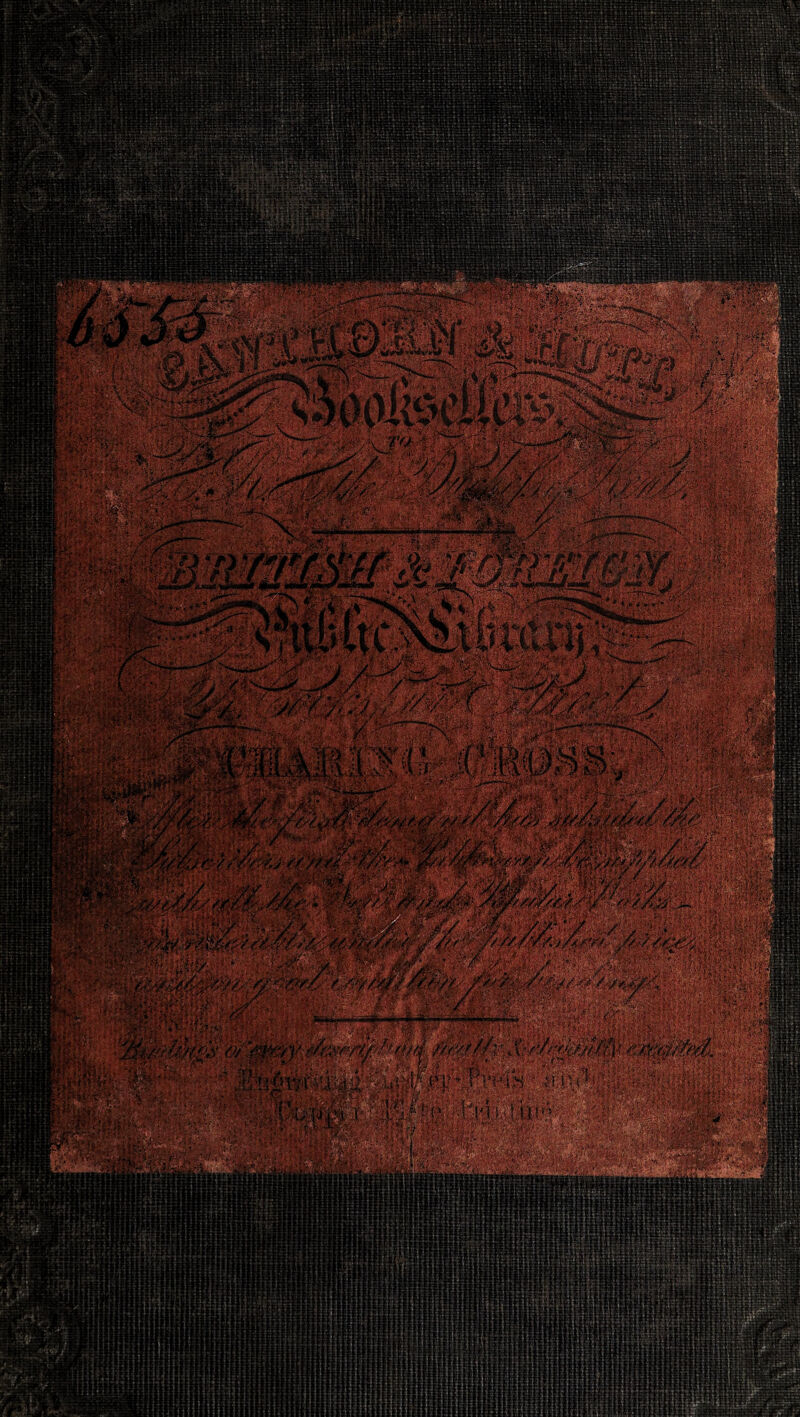 6555
CAWTHORN & HUTT,
Booksellers,
TO
H.R.H. the Dutchess of Kent.
BRITISH & FOREIGN,
Public Library,
Cockspur Street,
CHARING CROSS,
After the first demand has subsided the
Subscribers and the Public can be supplied
with all the New and Popular Works
considerably under the published price,
and in good condition for binding.
Bindings of every description neatly & elegantly executed.
Engraving Letter-Press and
Copper Plate Printing.